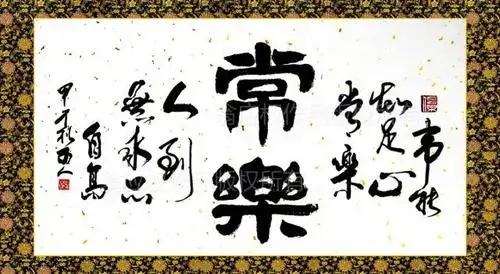 事能
知足心
常樂
常樂
人到
無求品
自高
甲午秋